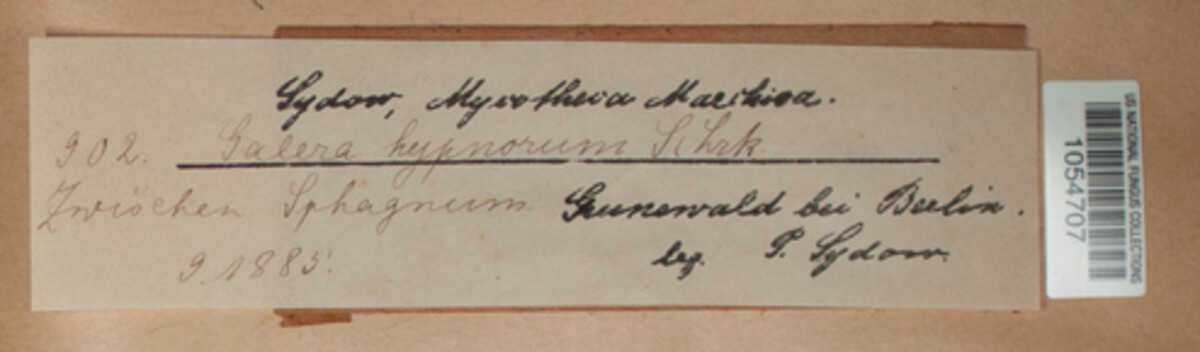 Sydow, Mycotheca Marchica.
902. Galera hypnorum Schrk
Zwischen Sphagnum Grunewald bei Berlin.
9.1885. leg. P. Sydow.
US NATIONAL FUNGUS COLLECTIONS
1054707